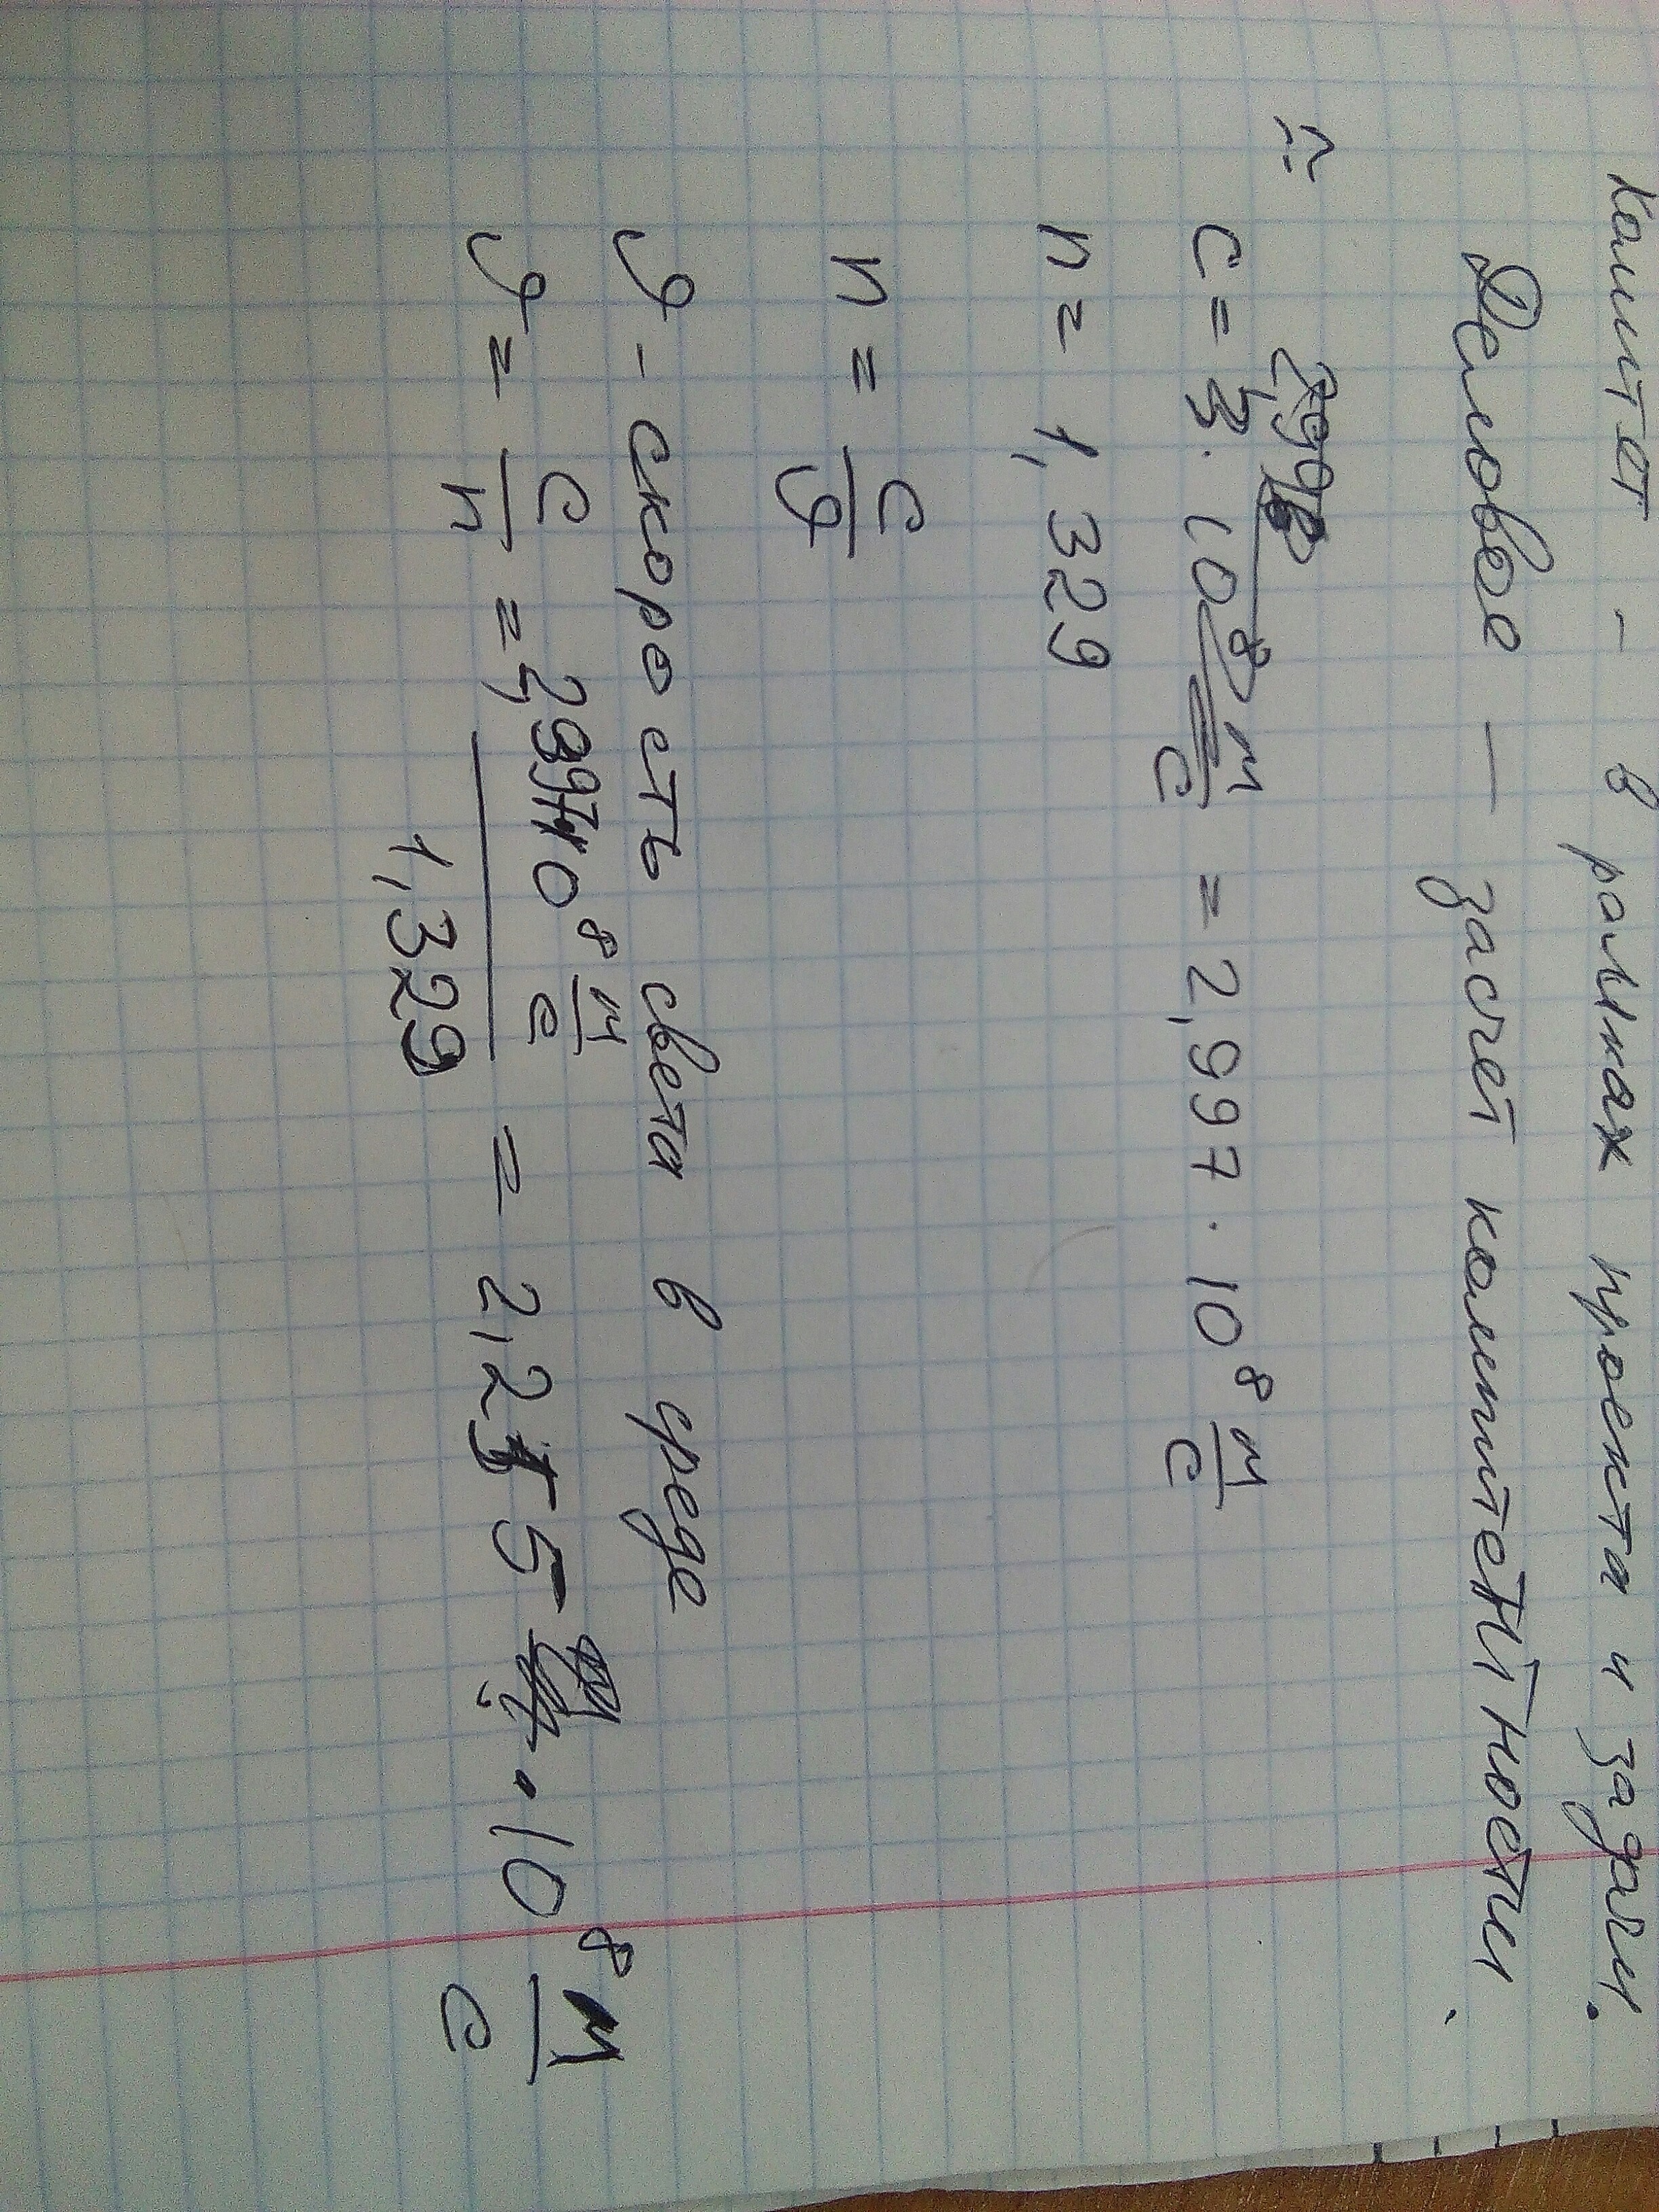 комитет - в рамках проекта и задач.
Деловое — засчет компетентности.
c = 3 · 10⁸ м/с = 2,997 · 10⁸ м/с
n = 1,329
n = c/υ
υ - скорость света в среде
υ = c/n = 2,997·10⁸ м/с / 1,329 = 2,255 · 10⁸ м/с